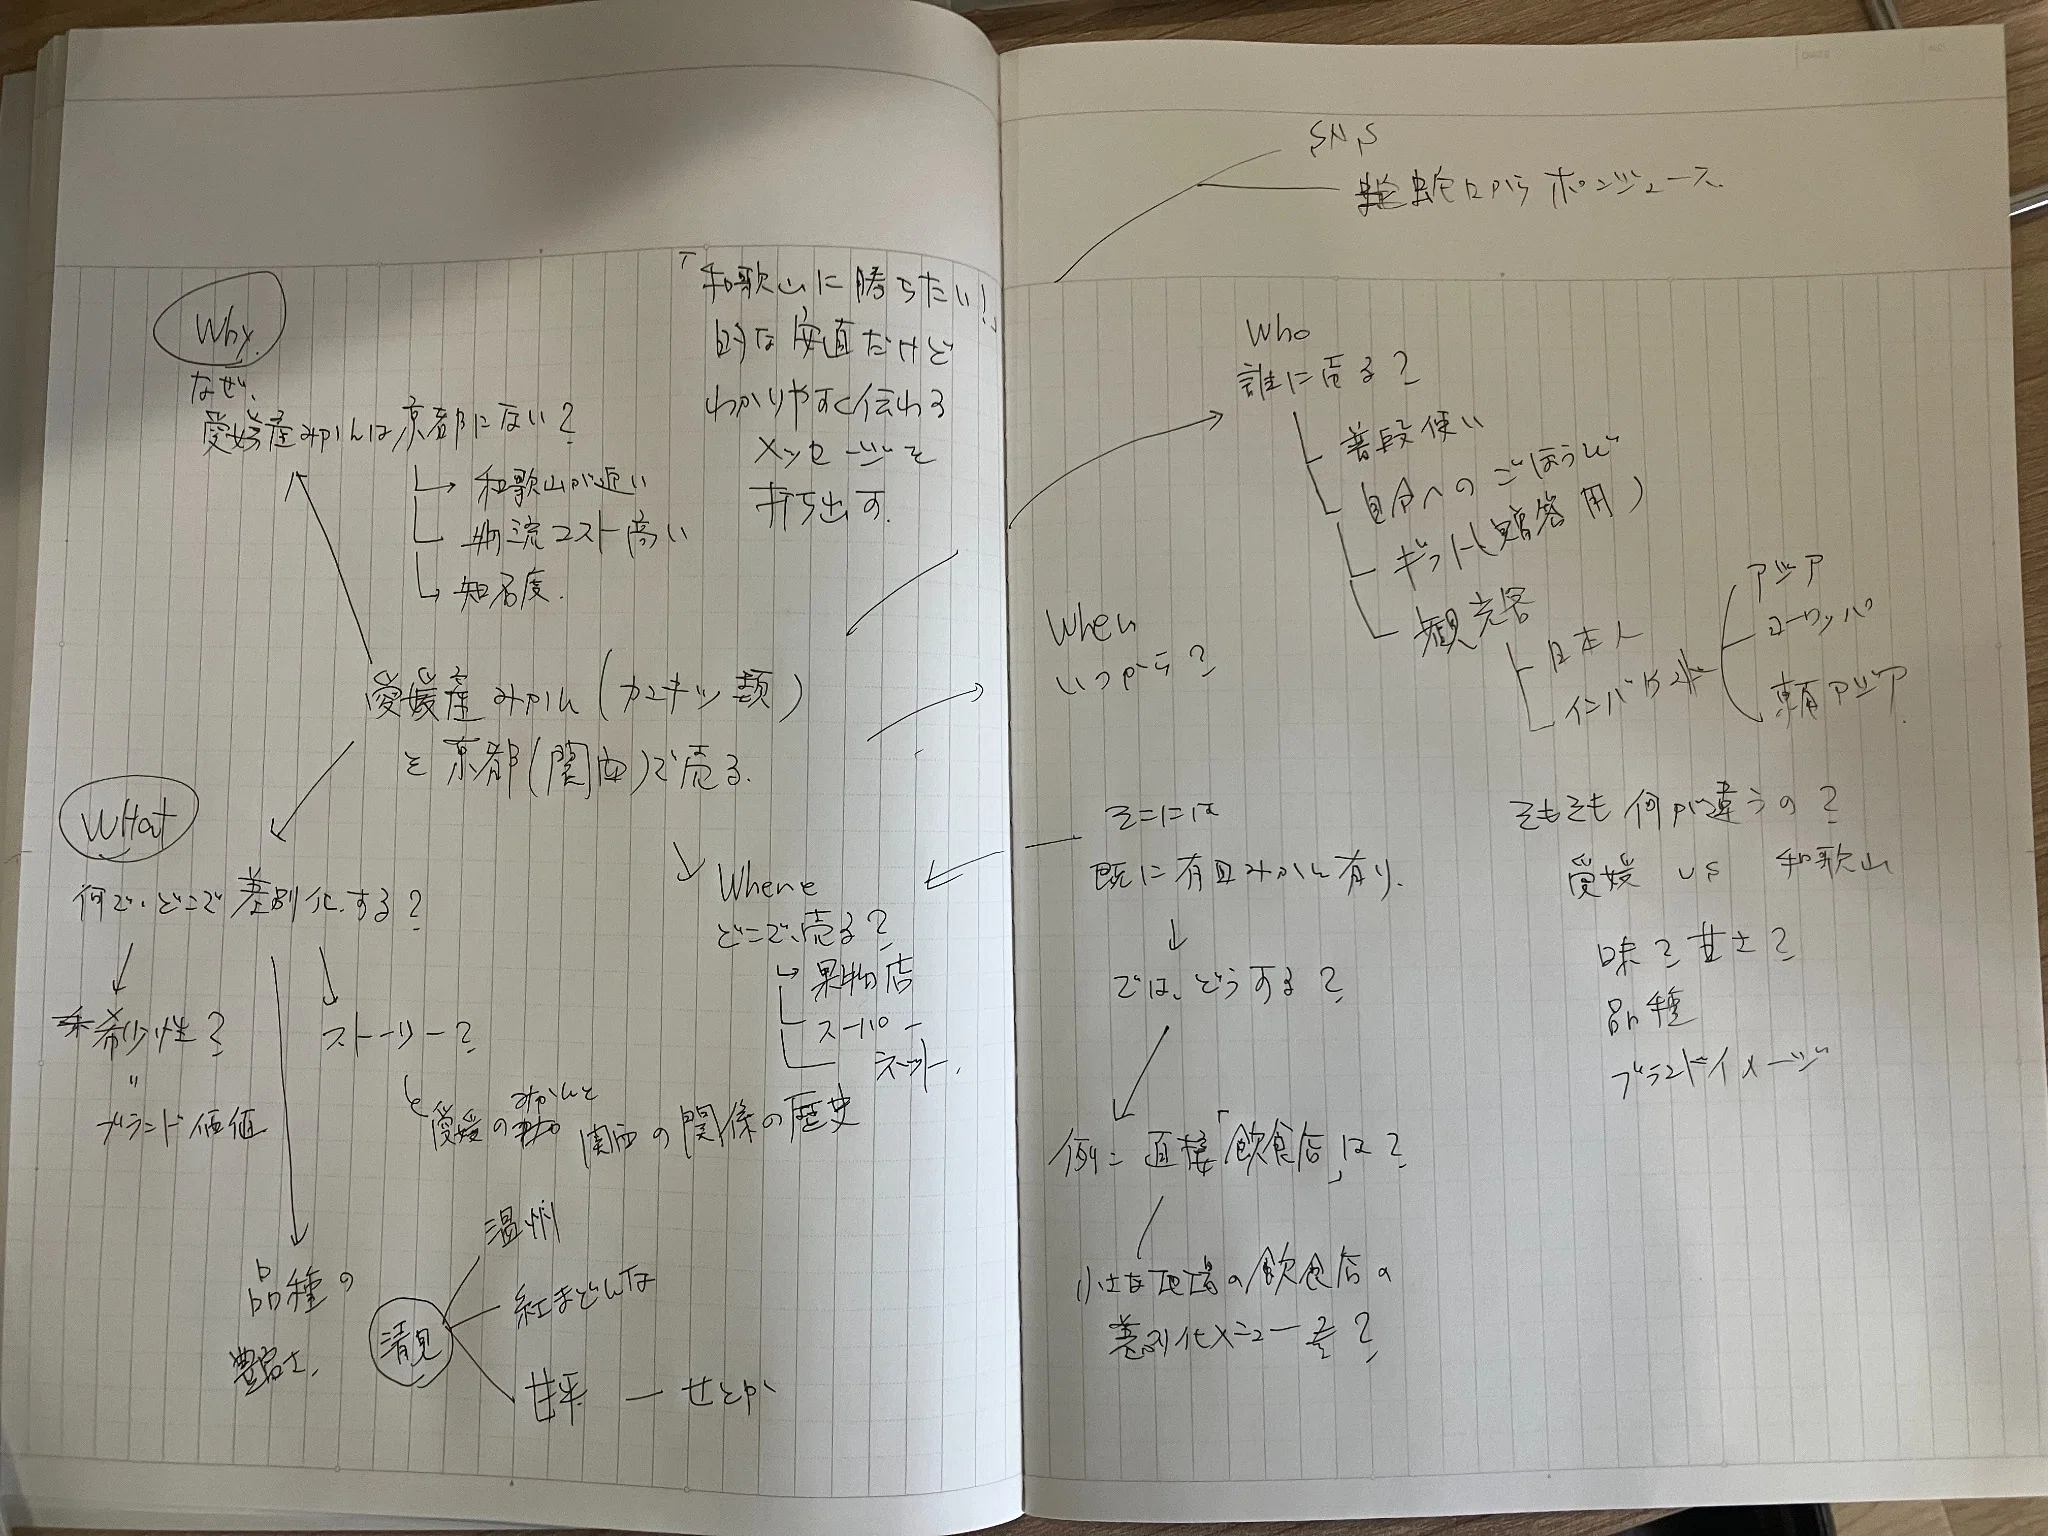 Why.
なぜ、
愛媛産みかんは京都にない?
和歌山が近い
物流コスト高い
知名度.
「和歌山に勝ちたい!」
的な安直だけど
わかりやすく伝わる
メッセージを
打ち出す.
愛媛産みかん(カンキツ類)
を京都(関西)で売る.
What
何で、どこで差別化する?
希少性?
〃
ブランド価値
ストーリー?
愛媛のみかんと
関西の関係の歴史
品種の
豊富さ.
清見
温州
紅まどんな
甘平 ー せとか
Where
どこで、売る?
果物店
スーパー
ネット.
SNS
蛇口からポンジュース.
Who
誰に売る?
普段使い
自分へのごほうび
ギフト(贈答用)
観光客
日本人
インバウンド
アジア
ヨーロッパ
東南アジア.
When
いつから?
そこには
既に有田みかん有り.
では、どうする?
例:直接「飲食店」は?
小さな地場の飲食店の
差別化メニュー
そもそも何が違うの?
愛媛 vs 和歌山
味?甘さ?
品種
ブランドイメージ